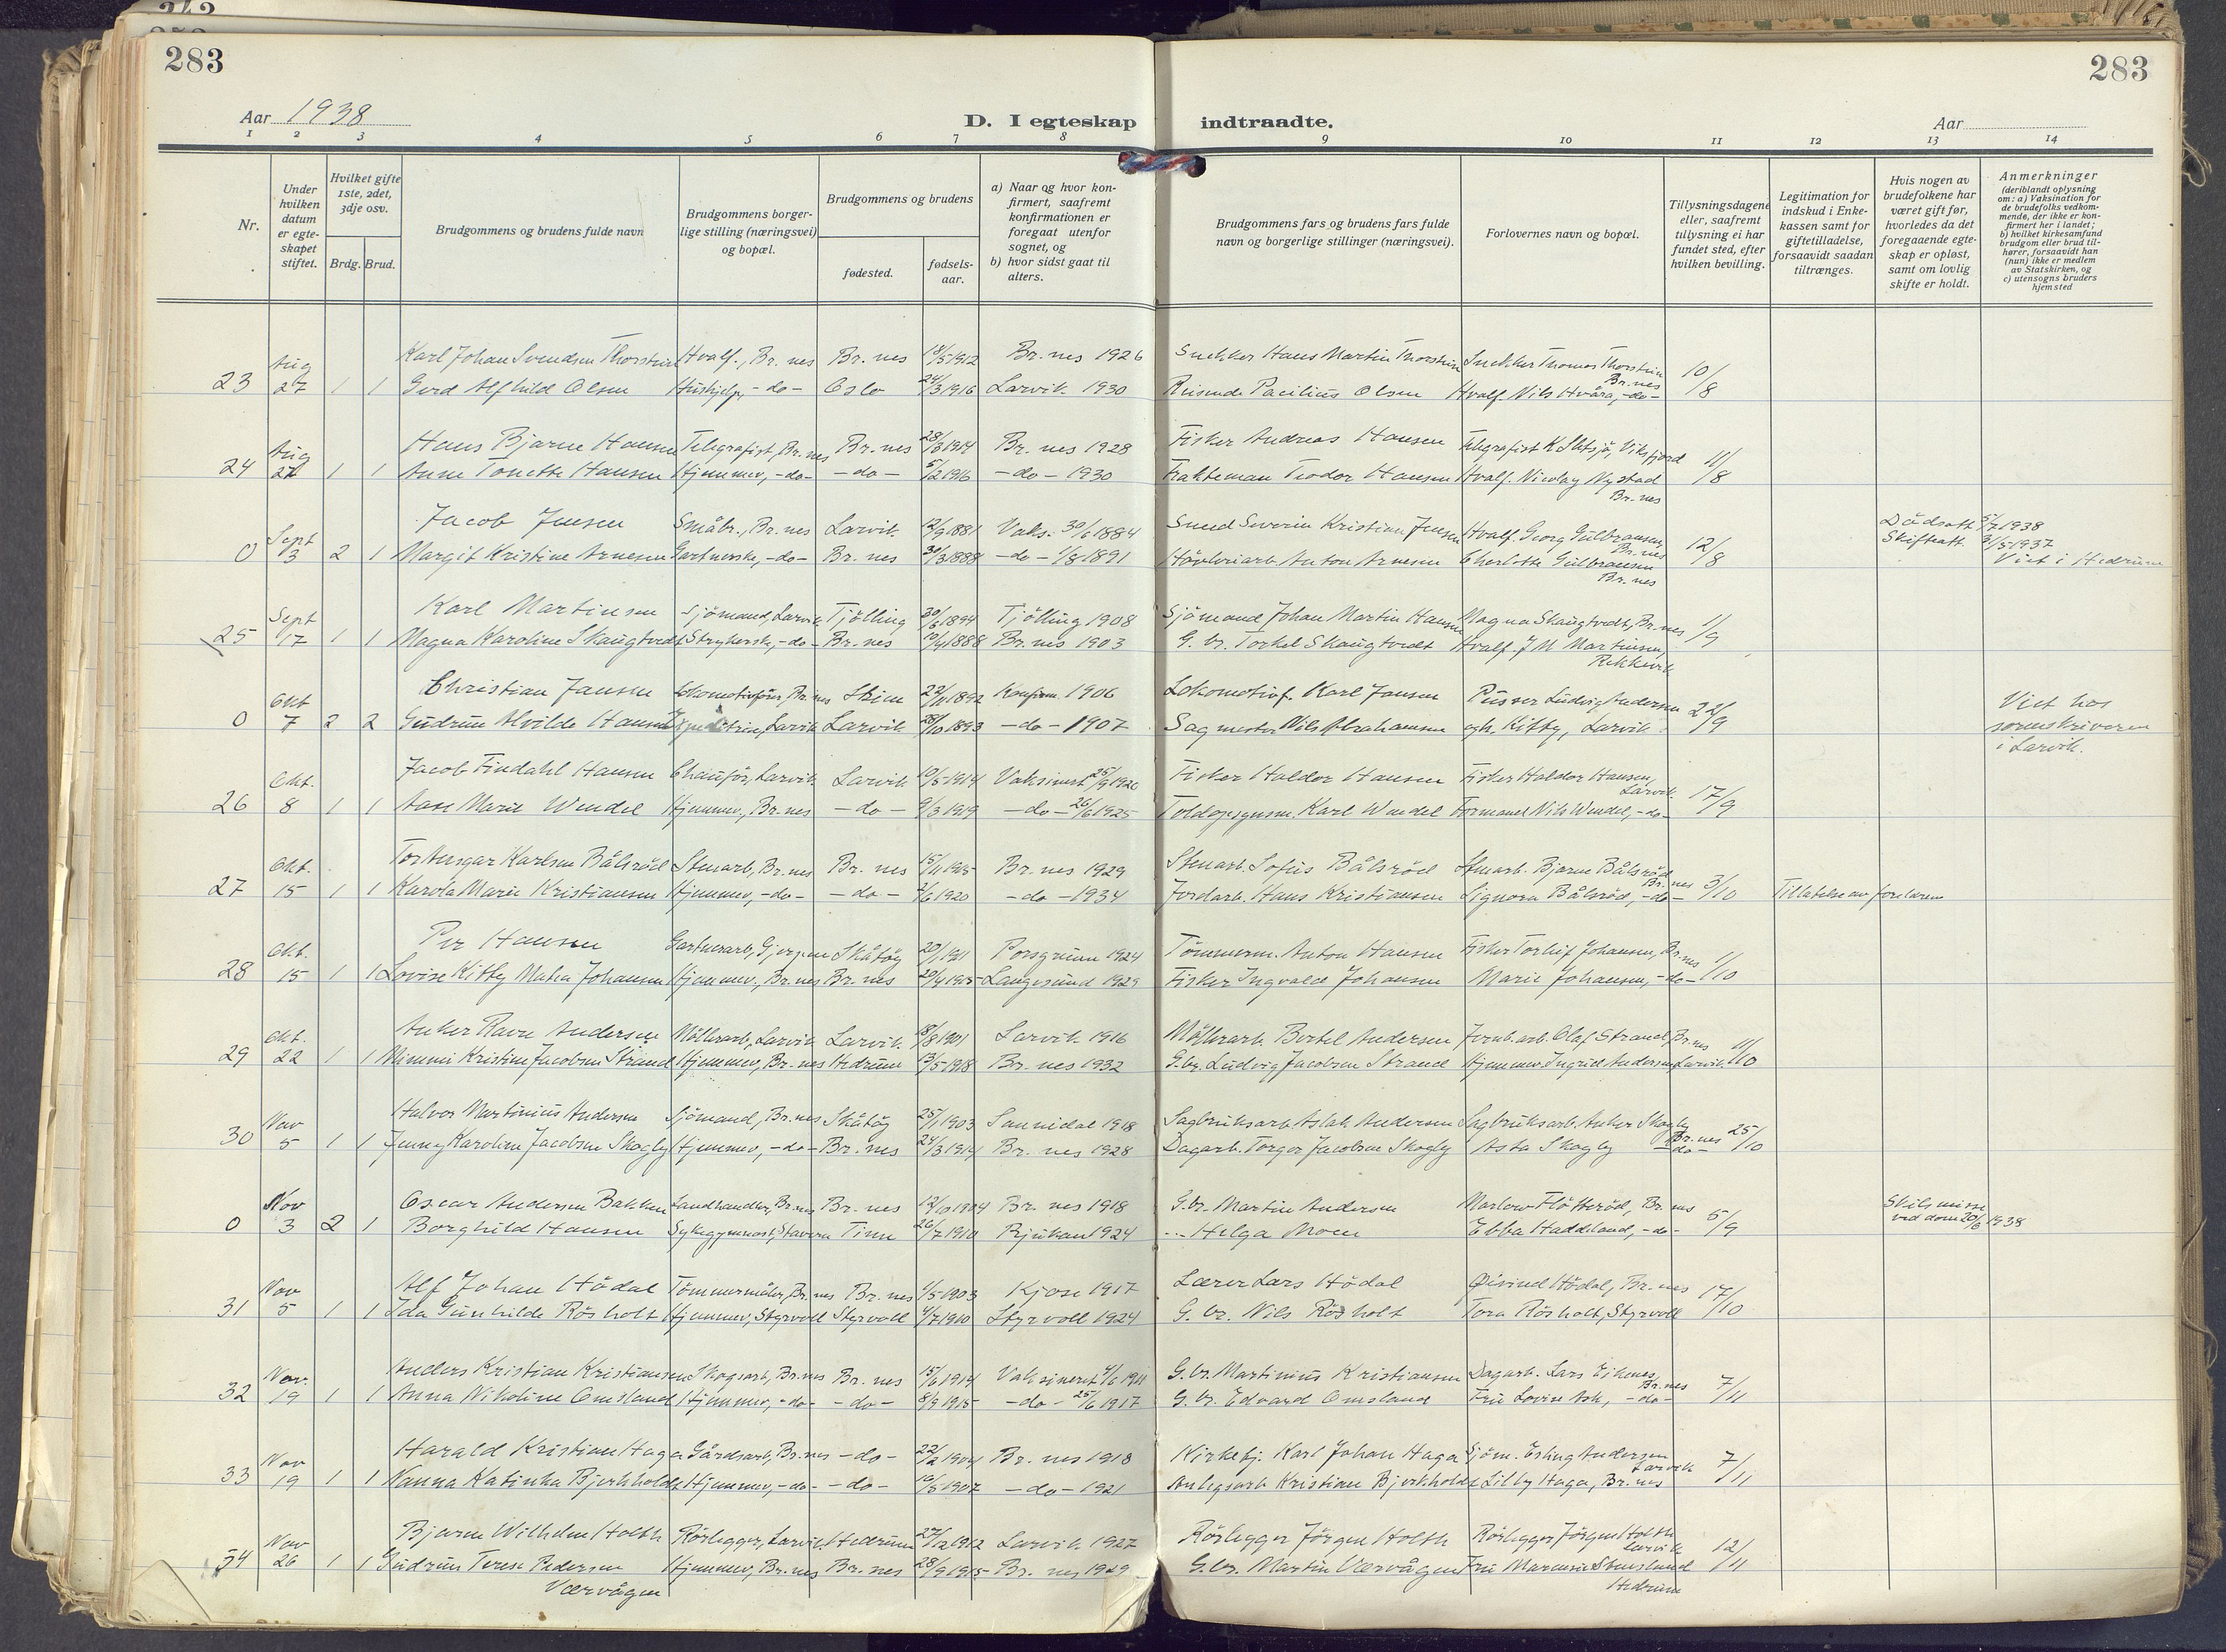 283
283
Aar 1938
D. I egteskap
indtraadte.
Aar
1 2 3 4 5 6 7 8 9 10 11 12 13 14
Nr.
Under hvilken datum er egteskapet stiftet.
Hvilket gifte 1ste, 2det, 3dje osv.
Brdg. Brud.
Brudgommens og brudens fulde navn
Brudgommens borgerlige stilling (næringsvei) og bopæl.
Brudgommens og brudens
fødested.
fødselsaar.
a) Naar og hvor konfirmert, saafremt konfirmationen er foregaat utenfor sognet, og
b) hvor sidst gaat til alters.
Brudgommens fars og brudens fars fulde navn og borgerlige stillinger (næringsvei).
Forlovernes navn og bopæl.
Tillysningsdagene eller, saafremt tillysning ei har fundet sted, efter hvilken bevilling.
Legitimation for indskud i Enkekassen samt for giftetilladelse, forsaavidt saadan tiltrænges.
Hvis nogen av brudefolkene har været gift før, hvorledes da det foregaaende egteskap er opløst, samt om lovlig skifte er holdt.
Anmerkninger (deriblandt oplysning om: a) Vaksination for de brudefolks vedkommende, der ikke er konfirmert her i landet; b) hvilket kirkesamfund brudgom eller brud tilhører, forsaavidt han (hun) ikke er medlem av Statskirken, og c) utensogns bruders hjemsted
Aug Karl Johan Svendsen Thorstein Hvalf., Br.nes Br.nes 1912 Br.nes 1926 Snekker Hans Martin Thorstein Snekker Thomas Thorstein Br.nes 10/8
23 27 1 1 Gerd Alfhild Olsen Hushjelp, -do- Oslo 24/3 1916 Larvik 1930 Reisende Pacilius Olsen Hvalf. Nils Hvåra, -do-
Aug Hans Bjarne Hansen Telegrafist, Br.nes Br.nes 1914 Br.nes 1928 Fisker Andreas Hansen Telegrafist Viksfjord 11/8
24 27 1 1 Anne Tonette Hansen Hjemmev, -do- -do- 5/2 1916 -do- 1930 Fraktemann Teodor Hansen Hvalf. Nicolay Nystad Br.nes
Sept Jacob Jensen Småbr., Br.nes Larvik 12/9 1881 Vaks. 30/6 1884 Smed Severin Kristian Jensen Hvalf. Georg Gulbransen, Br.nes 12/8 Dødsatt. 5/7 1938
0 3 2 1 Margit Kristine Arnesen Gartnerske, -do- Br.nes 1888 -do- 1/8 1891 Høvleriarb. Anton Arnesen Charlotte Gulbransen Br.nes Skifteatt. 31/5 1937 Viet i Hedrum
Sept Karl Martinsen Sjømand, Larvik Tjølling 1894 Tjølling 1908 Sjømand Johan Martin Hansen Magna Skaugtvedt, Br.nes 1/9
25 17 1 1 Magna Karoline Skaugtvedt Strykerske, -do- Br.nes 1888 Br.nes 1903 G.br. Torkel Skaugtvedt Hvalf. J M Martinsen, Rekkevik
Okt Christian Jansen Lokomotivfører, Br.nes Skien 1892 Konfirm. 1906 Lokomotivf. Karl Jansen Pusser Ludvig Andersen 22/9 Viet hos
0 7 2 2 Gudrun Alvilde Hansen Larvik Larvik 28/10 1893 -do- 1907 Sagmester Nils Abrahamsen og h. Kitty, Larvik sorenskriveren i Larvik.
Okt. Jacob Findahl Hansen Chauffør, Larvik Larvik 10/5 1914 Vaksinert 25/9 1920 Fisker Haldor Hansen Fisker Haldor Hansen, Larvik 17/9
26 8 1 1 Aase Marie Wendel Hjemmev., Br.nes -do- 9/3 1919 -do- 26/6 1925 Toldopsynsm. Karl Wendel Formand Nils Wendel, -do-
Okt. Tor Ansgar Karlsen Bålsrød Stenarb., Br.nes Br.nes 15/11 1915 Br.nes 1929 Stenarb. Sofus Bålsrød Stenarb. Bjarne Bålsrød Br.nes 3/10
27 15 1 1 Karola Marie Kristiansen Hjemmev, -do- -do- 1920 -do- 1934 Jordarb. Hans Kristiansen Signora Bålsrød, -do- Tillatelse av foreldrene
Okt. Per Hansen Gartnerarb., Gjerpen Skåtøy 20/1 1911 Porsgrunn 1924 Tømmerm. Anton Hansen Fisker Torleif Johansen, Br.nes 1/10
28 15 1 1 Lovise Kitty Matea Johansen Hjemmev., Br.nes Br.nes 1915 Langesund 1929 Fisker Ingvald Johansen Marie Johansen, -do-
Okt. Anker Ravn Andersen Møllerarb., Larvik Larvik 1901 Larvik 1916 Møllerarb. Bertel Andersen Jernb.arb. Olaf Strand, Br.nes 11/10
29 22 1 1 Mimmi Kristine Jacobsen Strand Hjemmev, Br.nes Hedrum 13/5 1918 Br.nes 1932 G.br. Ludvig Jacobsen Strand Hjemmev. Ingrid Andersen, Larvik
Nov Halvor Martinius Andersen Sjømand, Br.nes Skåtøy 25/1 1903 Sannidal 1918 Sagbruksarb. Aslak Andersen Sagbruksarb. Anker Skogly Br.nes 25/10
30 5 1 1 Jenny Karoline Jacobsen Skogly Hjemmev, -do- Br.nes 24/3 1914 Br.nes 1928 Dagarb. Torger Jacobsen Skogly Asta Skogly -do-
Nov Oscar Andersen Bakken Landhandler, Br.nes Br.nes 12/10 1904 Br.nes 1918 G.br. Martin Andersen Marlow Fløtterød, Br.nes 5/9 Skilsmisse
0 3 2 1 Borghild Hansen Sykegymnast, Stavern Tinn 26/7 1910 Rjukan 1924 Helga Moen Ebba Haddeland, -do- ved dom 20/6 1938
Nov Alf Johan Hødal Tømmermåler, Br.nes Br.nes 1/5 1903 Kjose 1917 Lærer Lars Hødal Øivind Hødal, Br.nes 17/10
31 5 1 1 Ida Gunhilde Røsholt Hjemmev, Styrvoll Styrvoll 4/7 1910 Styrvoll 1924 G.br. Nils Røsholt Tora Røsholt, Styrvoll
Nov. Anders Kristian Kristiansen Skogsarb., Br.nes Br.nes 15/6 1914 Vaksinert G.br. Martinius Kristiansen Dagarb. Lars Eikenes Br.nes 7/11
32 19 1 1 Anna Nikoline Omsland Hjemmev, -do- -do- 8/9 1915 -do- 25/6 1917 G.br. Edvard Omsland Fru Lovise Ask, -do-
Nov Harald Kristian Haga Gårdsarb., Br.nes -do- 22/2 1904 Br.nes 1918 Kirketj. Karl Johan Haga Sjøm. Esling Andersen Larvik 7/11
33 19 1 1 Nanna Katinka Bjerkholdt Hjemmev, -do- -do- 1907 -do- 1921 Anlegsarb. Kristian Bjerkholdt Lilly Haga, Br.nes
Nov Bjarne Wilhelm Holth Rørlegger, Larvik Hedrum 27/12 1912 Larvik 1927 Rørlegger Jørgen Holth Rørlegger Jørgen Holth Larvik 12/11
34 26 1 1 Gudrun Terese Pedersen Værvågen Hjemmev, Br.nes Br.nes 28/9 1915 Br.nes 1929 G.br. Martin Værvågen Fru Marensie Stensland Hedrum